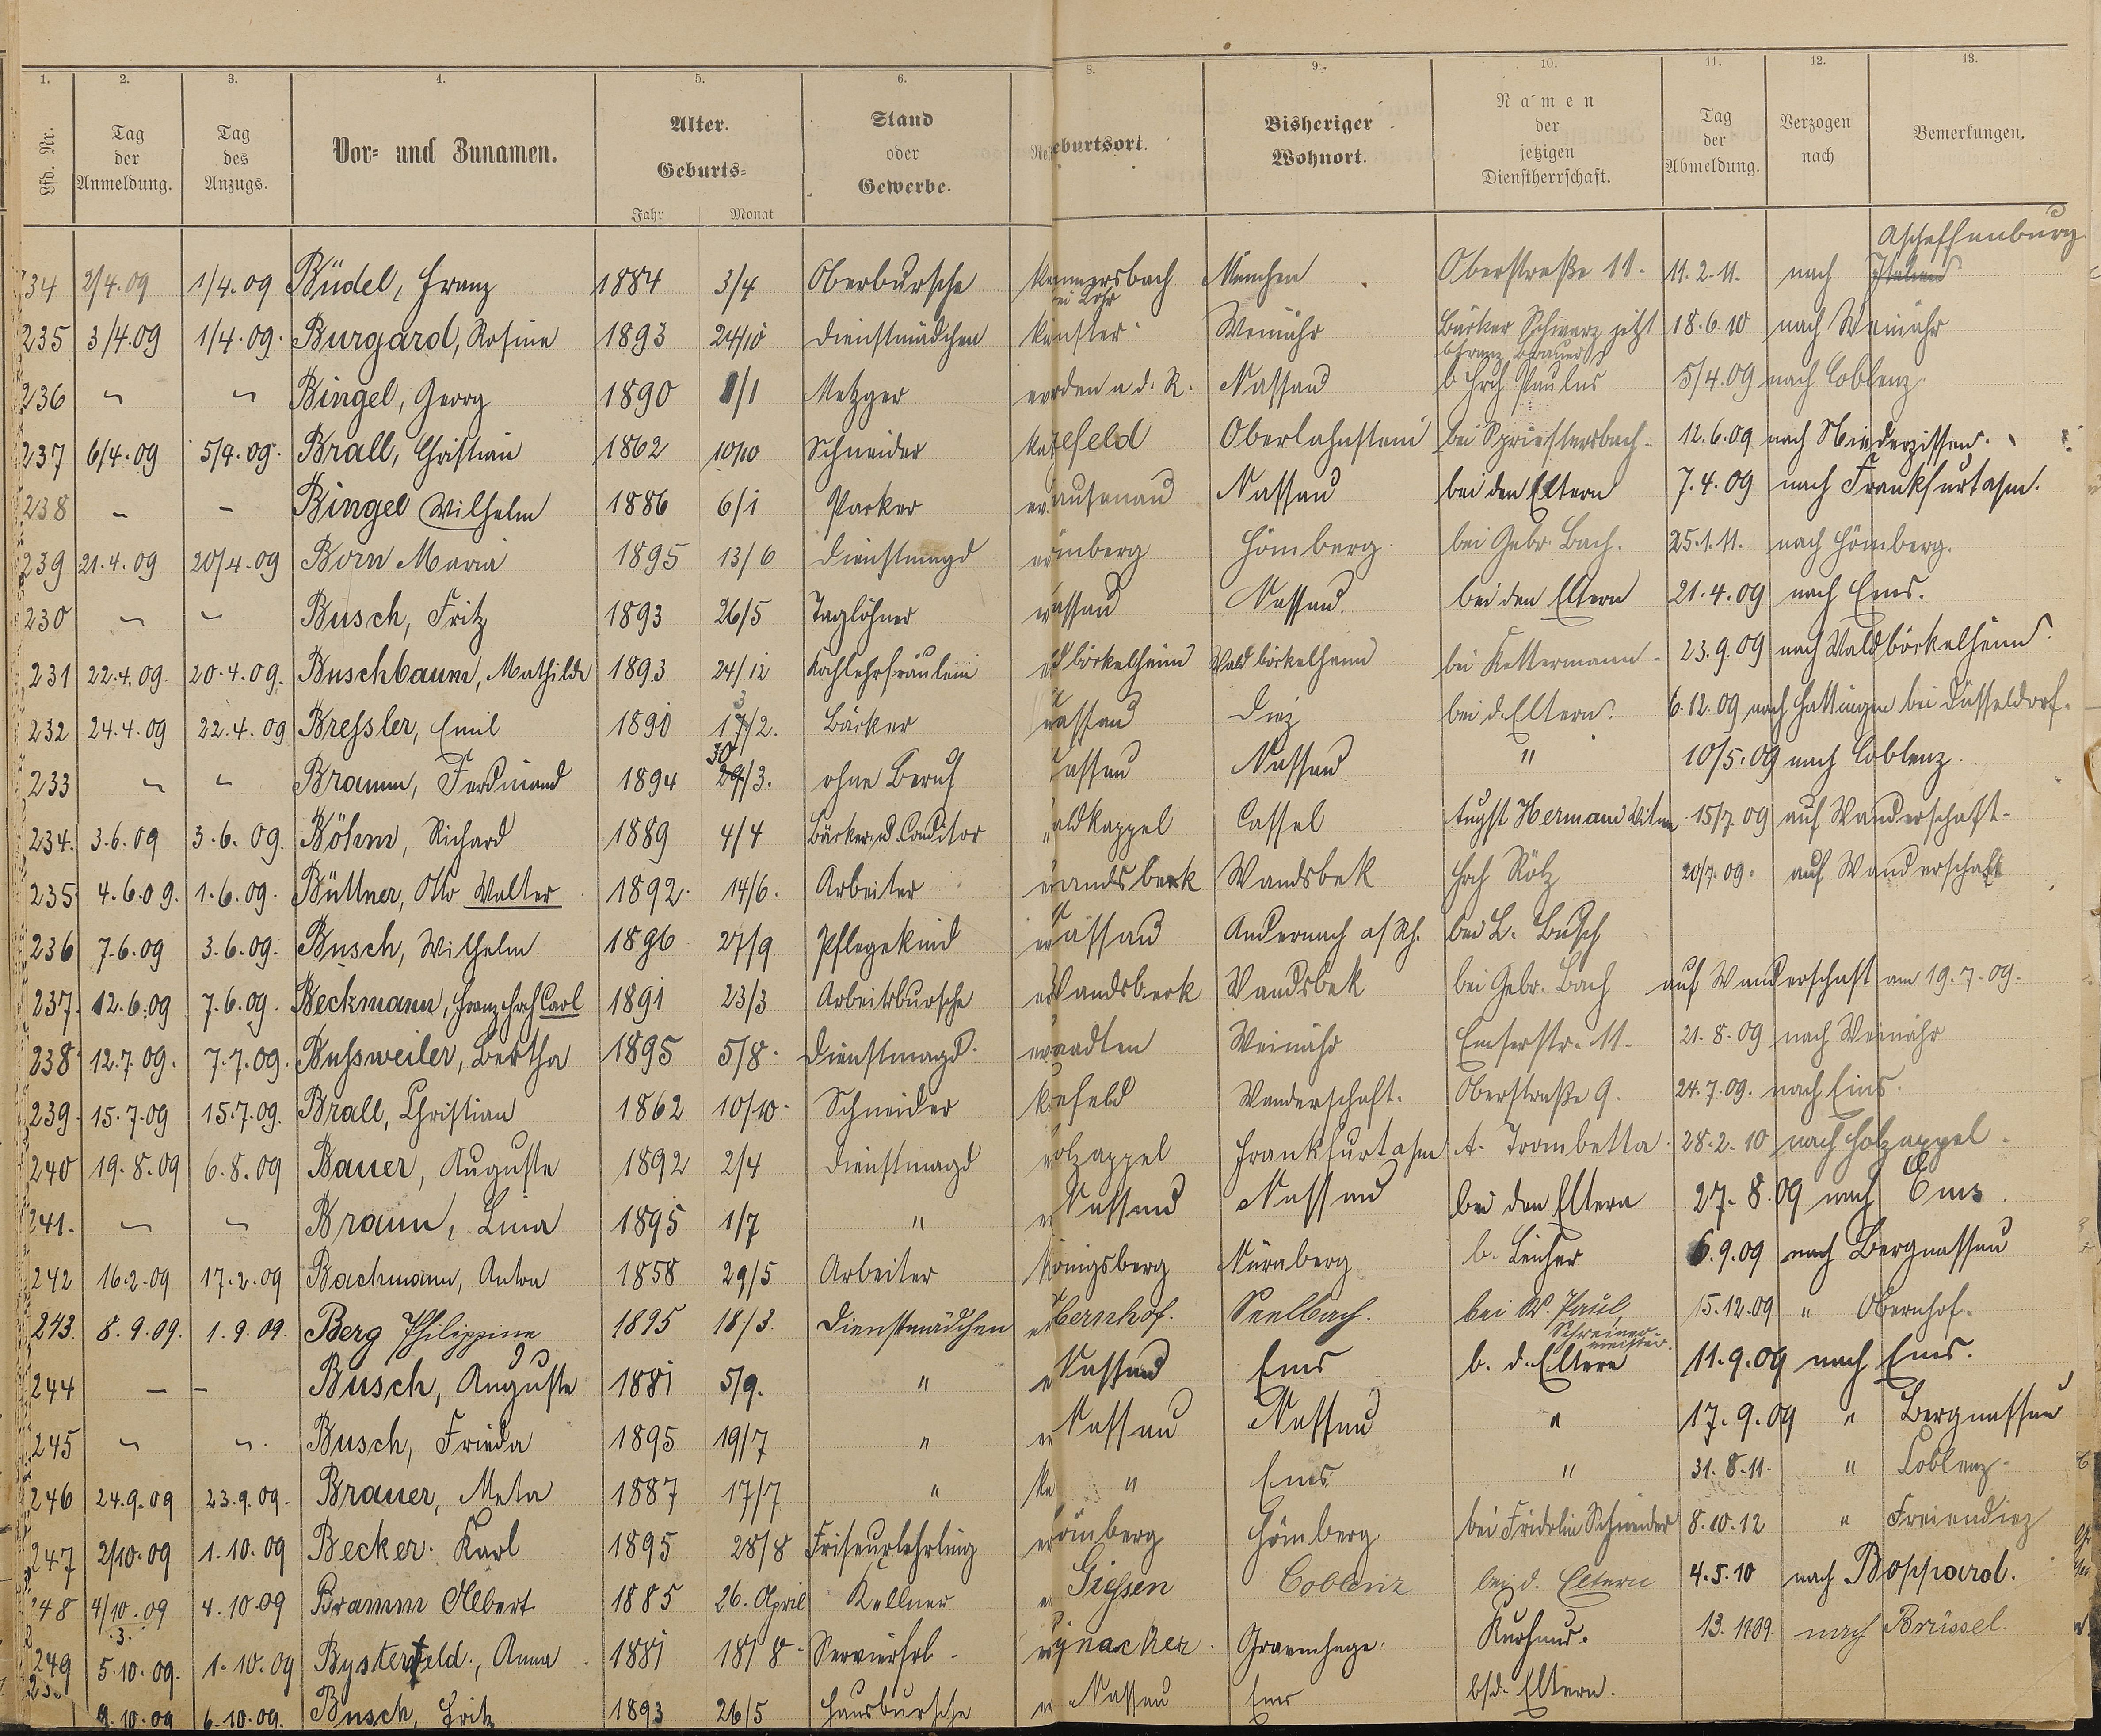 1. 2. 3. 4. 5. 6. 8. 9. 10. 11. 12. 13.
Lfd. Nr. Tag der Anmeldung. Tag des Anzugs. Vor= und Zunamen. Alter. Geburts= Jahr Monat Stand oder Gewerbe. Rel eburtsort. Bisheriger Wohnort. Namen der jetzigen Dienstherrschaft. Tag der Abmeldung. Verzogen nach Bemerkungen.
Aschaffenburg
34 2/4.09 1/4.09 Büdel, Franz 1884 3/4 Oberbursche München Oberstraße 11. 11.2.11. nach Italien
bei Lohr
235 3/4.09 1/4.09. Burgard, Rosine 1893 24/10 Dienstmädchen Winster Weinähr Bäcker Schwarz jetzt 18.6.10 nach Weinähr
b Franz Brauer
236 " " Bingel, Georg 1890 1/1 Metzger ev rden a d. R. Nassau b Hrch Paulus 5/4.09 nach Coblenz
237 6/4.09 5/4.09. Brall, Christian 1862 10/10 Schneider ka efeld Oberlahnstein bei Spriestersbach 12.6.09 nach Niederzissen.
238 - - Bingel Wilhelm 1886 6/1 Packer ev. ausenau Nassau bei den Eltern 7.4.09 nach Frankfurt a/m.
239 21.4.09 20/4.09 Born Maria 1895 13/6 Dienstmagd ev ömberg Hömberg bei Gebr. Bach. 25.1.11. nach Hömberg.
230 " " Busch, Fritz 1893 26/5 Taglöhner ev assau Nassau bei den Eltern 21.4.09 nach Ems.
231 22.4.09. 20.4.09. Buschbaum, Mathilde 1893 24/12 Kochlehrfräulein ldböckelheim Waldböckelheim bei Kettermann 23.9.09 nach Waldböckelheim.
3
232 24.4.09 22.4.09 Bressler, Emil 1890 17/2. Bäcker assau Diez bei d. Eltern 6.12.09 nach Hattingen bei Düsseldorf.
30
233 " " Bramm, Ferdinand 1894 29/3. ohne Beruf assau Nassau " 10/5.09 nach Coblenz.
234. 3.6.09 3.6.09. Böhm, Richard 1889 4/4 Bäcker u. Conditor " aldkappel Cassel August Hermann Witwe 15/7 09 auf Wanderschaft-
235. 4.6.09. 1.6.09. Büttner, Otto Walter 1892. 14/6. Arbeiter ev andsbeck Wandsbek Hch Rötz 20/7.09. auf Wanderschaft
236 7.6.09 3.6.09. Busch, Wilhelm 1896 27/9 Pflegekind ev assau Andernach a/Rh. bei L. Busch
237. 12.6.09 7.6.09. Beckmann, Franz Hrch Carl 1891 23/3 Arbeitsbursche ev Wandsbeck Wandsbek bei Gebr. Bach auf Wanderschaft am 19.7.09.
238 12.7.09. 7.7.09. Bussweiler, Bertha 1895 5/8. Dienstmagd. ev Weinähr Emserstr. 11. 21.8.09 nach Weinähr
239. 15.7.09 15.7.09. Brall, Christian 1862 10/10. Schneider k efeld Wanderschaft. Oberstraße 9. 24.7.09. nach Ems.
240 19.8.09 6.8.09 Bauer, Auguste 1892 2/4 Dienstmagd olzappel Frankfurt a/m A. Trombetta 28.2.10 nach Holzappel.
241. " " Braun, Lina 1895 1/7 " Nassau Nassau bei den Eltern 27.8.09 nach Ems.
242 16.2.09 17.2.09 Bachmann, Anton 1858 29/5 Arbeiter Königsberg Nürnberg b. Leicher 6.9.09 nach Bergnassau
243. 8.9.09. 1.9.09. Berg Philippine 1895 18/3. Dienstmädchen ev bernhof. Seelbach. bei W. Paul, 15.12.09 " Obernhof.
Schreinermeister.
244 - - Busch, Auguste 1881 5/9. " Nassau Ems b. d. Eltern 11.9.09 nach Ems.
245 " " Busch, Frieda 1895 19/7 " Nassau Nassau " 17.9.09 " Bergnassau
246 24.9.09 23.9.09. Brauer, Meta 1887 17/7 " ka " Ems " 31.8.11. " Coblenz
247 2/10.09 1.10.09 Becker Karl 1895 28/8 Friseurlehrling ev ömberg Hömberg bei Fridolin Schneider 8.10.12 " Freiendiez
248 4/10.09 4.10.09 Bramm Albert 1885 26. April Kellner Giessen Coblenz bei d. Eltern 4.5.10 nach Boppard.
.3.
249 5.10.09. 1.10.09 Bysterfeld, Anna 1881 18/8. Servierfrl. Gravenhage. Kurhaus. 13.11.09. nach Brüssel.
9.10.09 6.10.09. Busch, Fritz 1893 26/5 Hausbursche Nassau Ems b/d. Eltern.